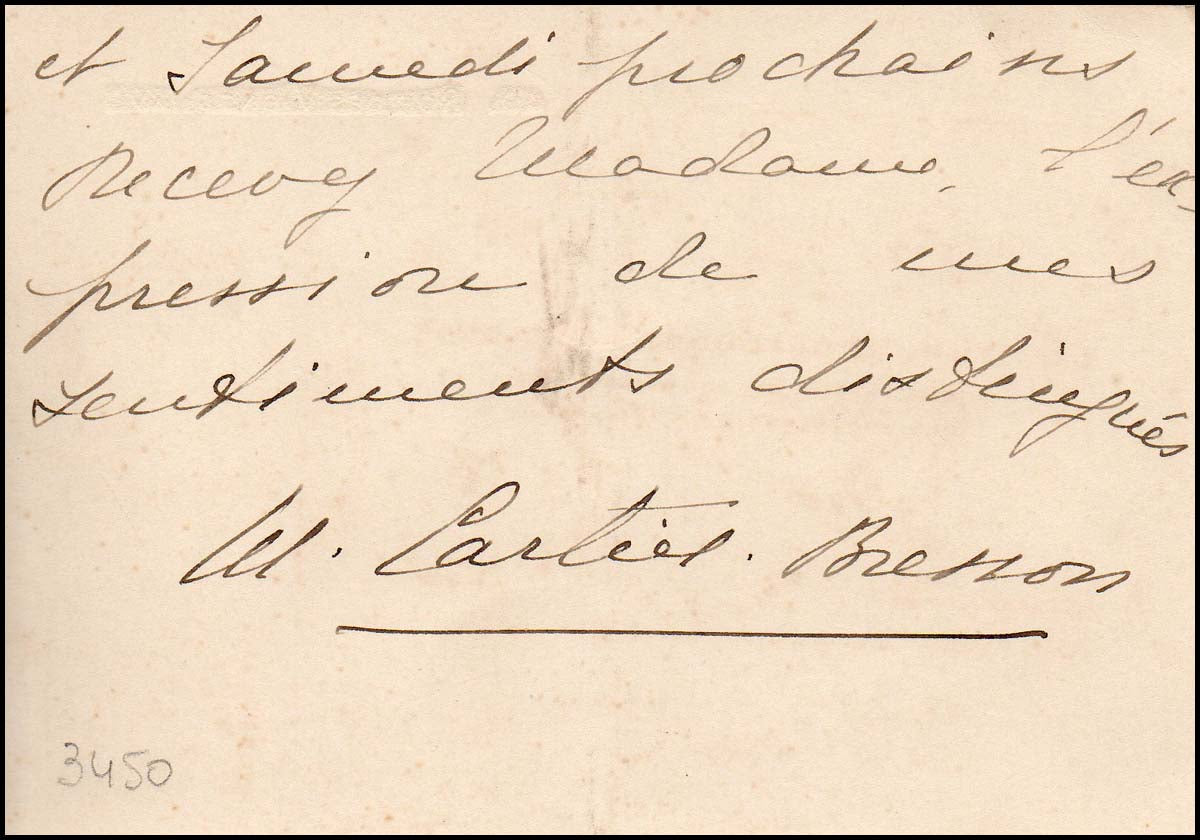 et Samedi prochains
Recevez Madame, l'ex
pression de mes
sentiments distingués
M. Cartier. Bresson
3450